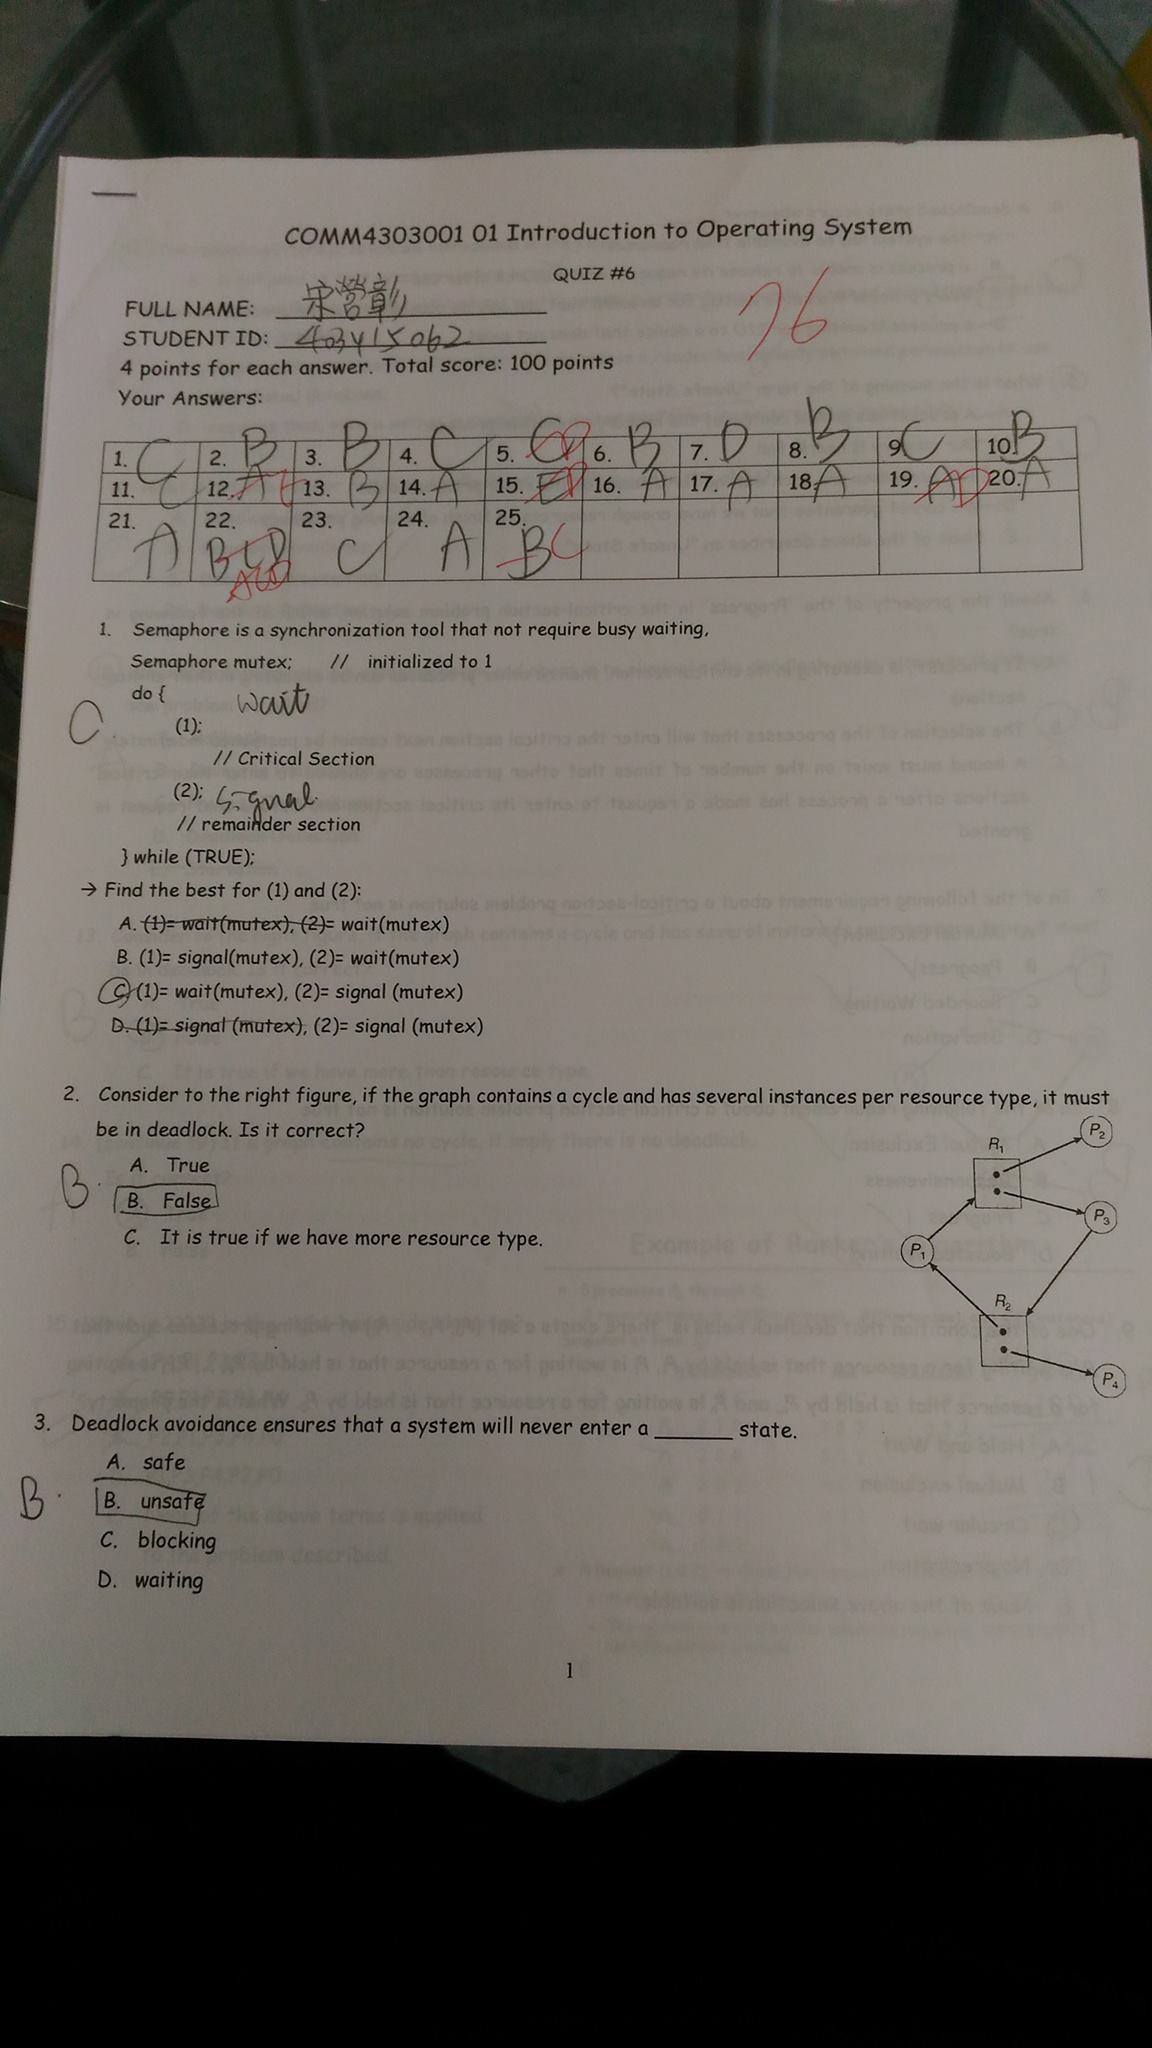 COMM4303001 01 Introduction to Operating System
QUIZ #6
76
FULL NAME: 宋營彰
STUDENT ID: 403415062
4 points for each answer. Total score: 100 points
Your Answers:
1. C 2. B 3. B 4. C 5. C D 6. B 7. D 8. B 9. C 10. B
11. C 12. A 13. B 14. A 15. E D 16. A 17. A 18. A 19. A D 20. A
21. A 22. BCD ACD 23. C 24. A 25. B C
1. Semaphore is a synchronization tool that not require busy waiting,
Semaphore mutex; // initialized to 1
do {
wait
C.
(1);
// Critical Section
(2); signal
// remainder section
} while (TRUE);
→ Find the best for (1) and (2):
A. (1)= wait(mutex), (2)= wait(mutex)
B. (1)= signal(mutex), (2)= wait(mutex)
C. (1)= wait(mutex), (2)= signal (mutex)
D. (1)= signal (mutex), (2)= signal (mutex)
2. Consider to the right figure, if the graph contains a cycle and has several instances per resource type, it must
be in deadlock. Is it correct?
B.
A. True
B. False
C. It is true if we have more resource type.
P2
R1
P3
P1
R2
P4
3. Deadlock avoidance ensures that a system will never enter a ______ state.
B.
A. safe
B. unsafe
C. blocking
D. waiting
1